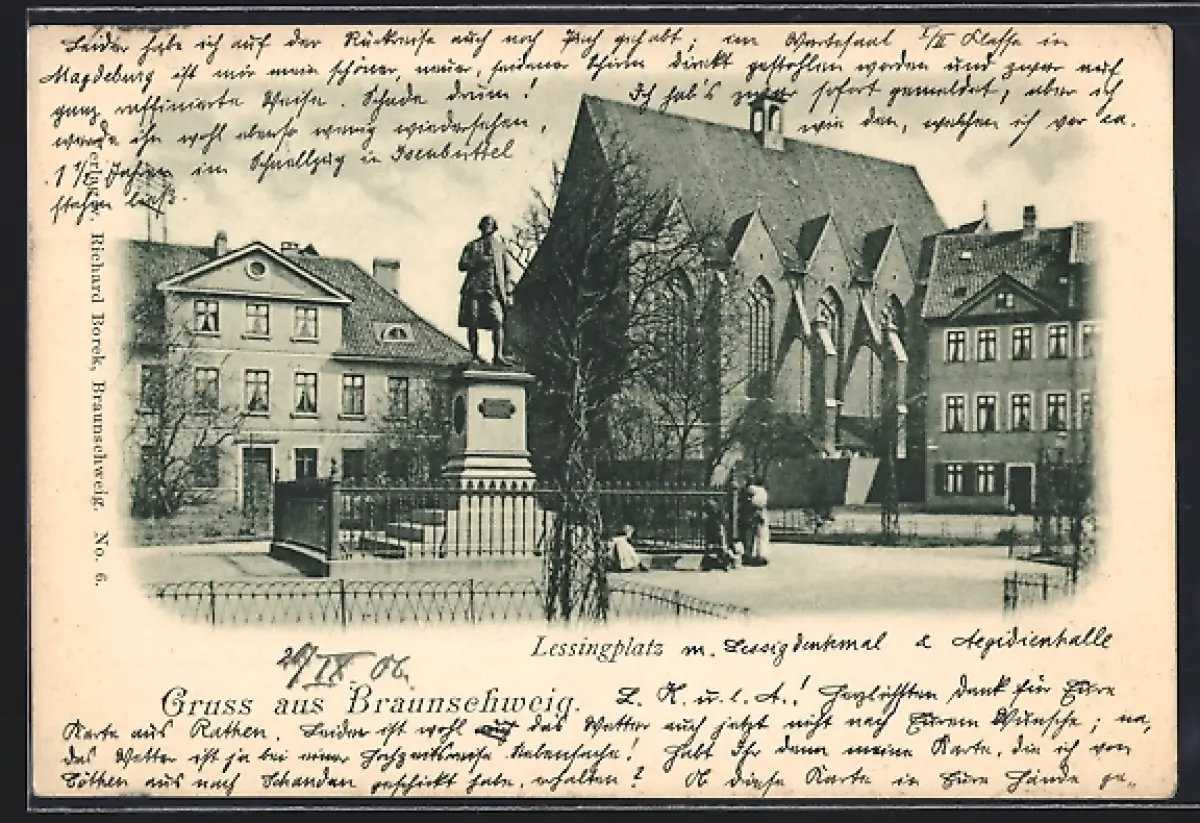 Leider habe ich auf der Rückreise auch noch Pech gehabt; im Wartesaal I/II Klasse in
Magdeburg ist mir mein schöner, neuer, seidener Schirm direkt gestohlen worden und zwar auf
ganz raffinierte Weise. Schade drum! Ich hab's zwar sofort gemeldet, aber ich
werde ihn wohl ebenso wenig wiedersehen, wie den, welchen ich vor ca.
1 1/2 Jahren im Schnellzug in Isenbüttel
stehen ließ.
Richard Borek, Braunschweig. No. 6.
Lessingplatz m. Lessigdenkmal & Aegidienhalle
IX. 06.
Gruss aus Braunschweig.
L. K. u. l. A.! Herzlichsten Dank für Eure
Karte aus Rathen. Leider ist wohl das Wetter auch jetzt nicht nach Eurem Wunsche; na,
das Wetter ist ja bei einer Hochzeitsreise Nebensache! Habt Ihr denn meine Karte, die ich von
Cöthen aus nach Schandau geschickt habe, erhalten? Ob diese Karte in Eure Hände ge-